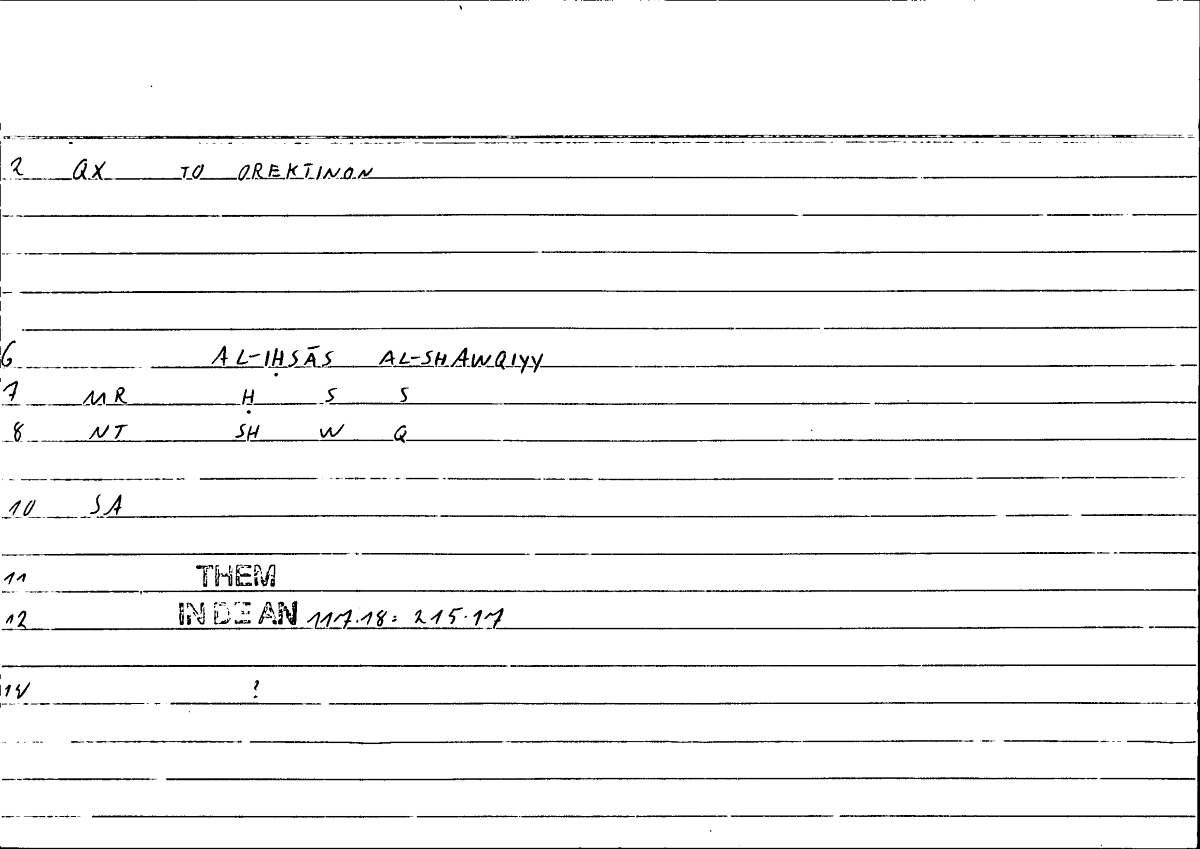 2 QX TO OREKTINON
6 AL-IḤSĀS AL-SHAWQIYY
7 MR Ḥ S S
8 NT SH W Q
10 SA
11 THEM
12 IN DE AN 117.18: 215.17
14 ?